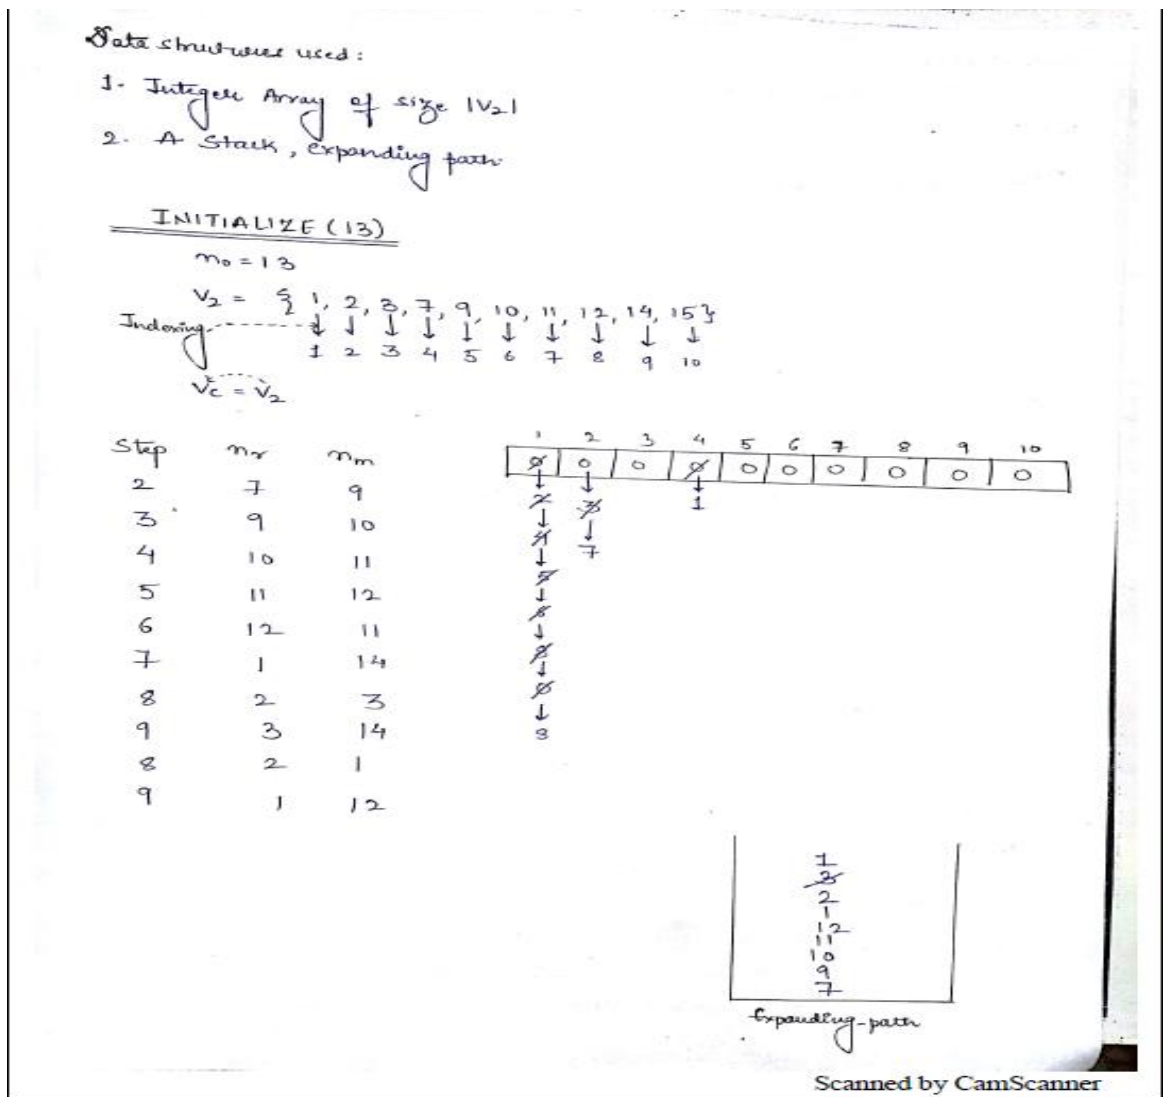 Data structures used:
1. Integer Array of size |V2|
2. A Stack, expanding path
INITIALIZE (13)
n0 = 13
V2 = { 1, 2, 3, 7, 9, 10, 11, 12, 14, 15 }
Indexing
1 2 3 4 5 6 7 8 9 10
Vc = V2
Step nr nm
2 7 9
3 9 10
4 10 11
5 11 12
6 12 11
7 1 14
8 2 3
9 3 14
8 2 1
9 1 12
1 2 3 4 5 6 7 8 9 10
0 0 0 0 0 0 0 0 0 0
3 1
7
8
1
3
2
1
12
11
10
9
7
Expanding-path
Scanned by CamScanner